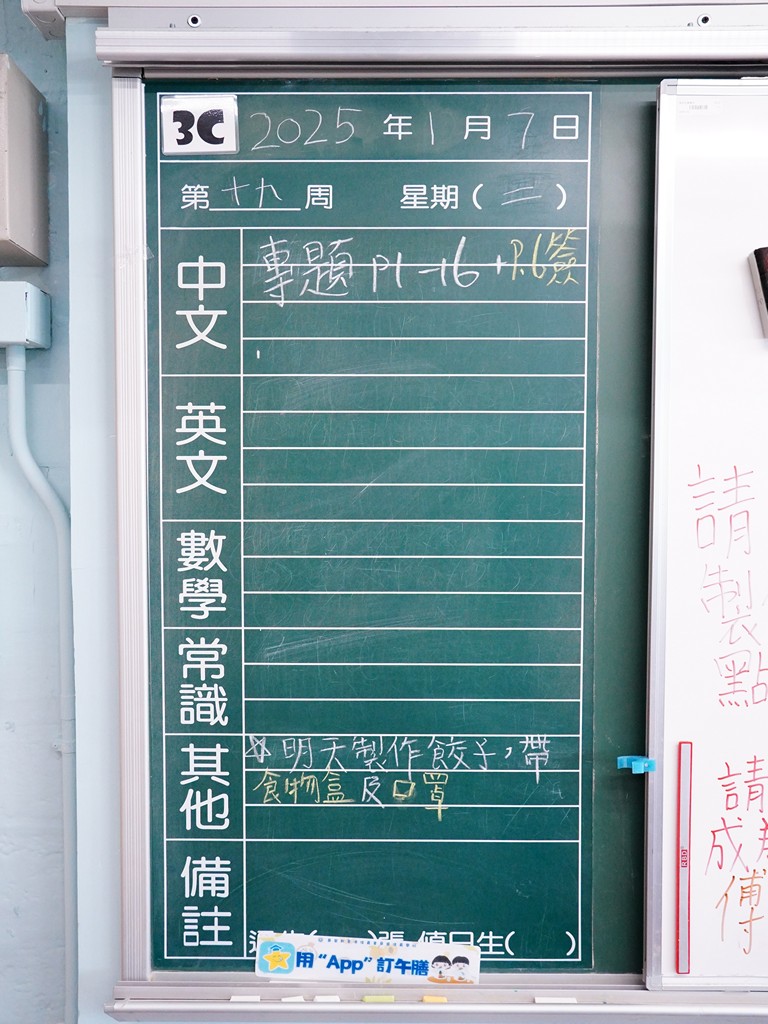 3C 2025 年 1 月 7 日
第 十九 周 星期 ( 二 )
中文
專題 P1-16 + P.6簽
英文
數學
常識
其他
☆ 明天製作餃子，帶
食物盒及口罩
備註
張 值日生( )
用 "App" 訂午膳
請
製
點
請
成
傅